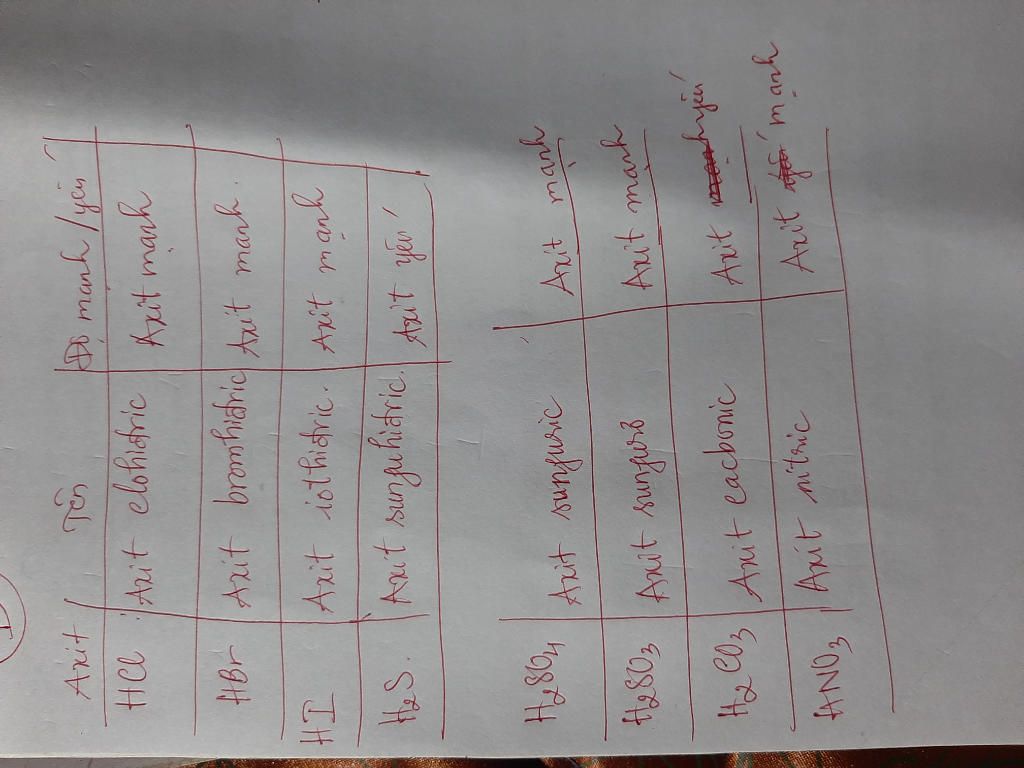 1
Axit Tên Độ mạnh/yếu
HCl Axit clohiđric Axit mạnh
HBr Axit bromhiđric Axit mạnh.
HI Axit iothiđric. Axit mạnh
H2S. Axit sunguhiđric. Axit yếu
H2SO4 Axit sunfuric Axit mạnh
H2SO3 Axit sunfurơ Axit mạnh
H2CO3 Axit cacbonic Axit yếu
HNO3 Axit nitric Axit mạnh